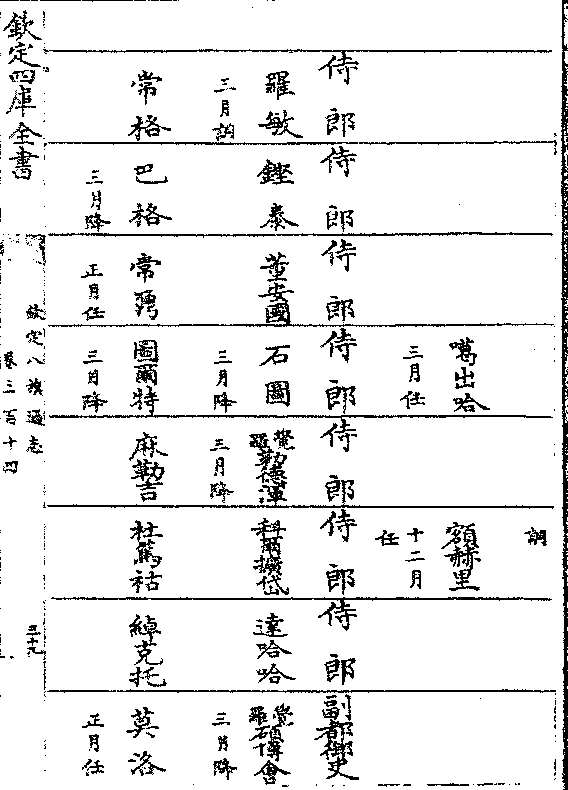 侍郎
羅敏
三月調
常格
侍郎
鏗泰
巴格
三月降
侍郎
董安國
常
正月任
噶出哈
三月任
侍郎
石圖
三月降
圖爾特
三月降
侍郎
覺羅勒德渾
三月降
麻勒吉
調
額赫里
十二月
任
侍郎
科爾擴岱
杜篤祜
侍郎
達哈哈
綽克托
副都御史
覺羅碩博會
三月降
莫洛
正月任
欽定四庫全書
欽定八旗通志
卷三百十四
三十九